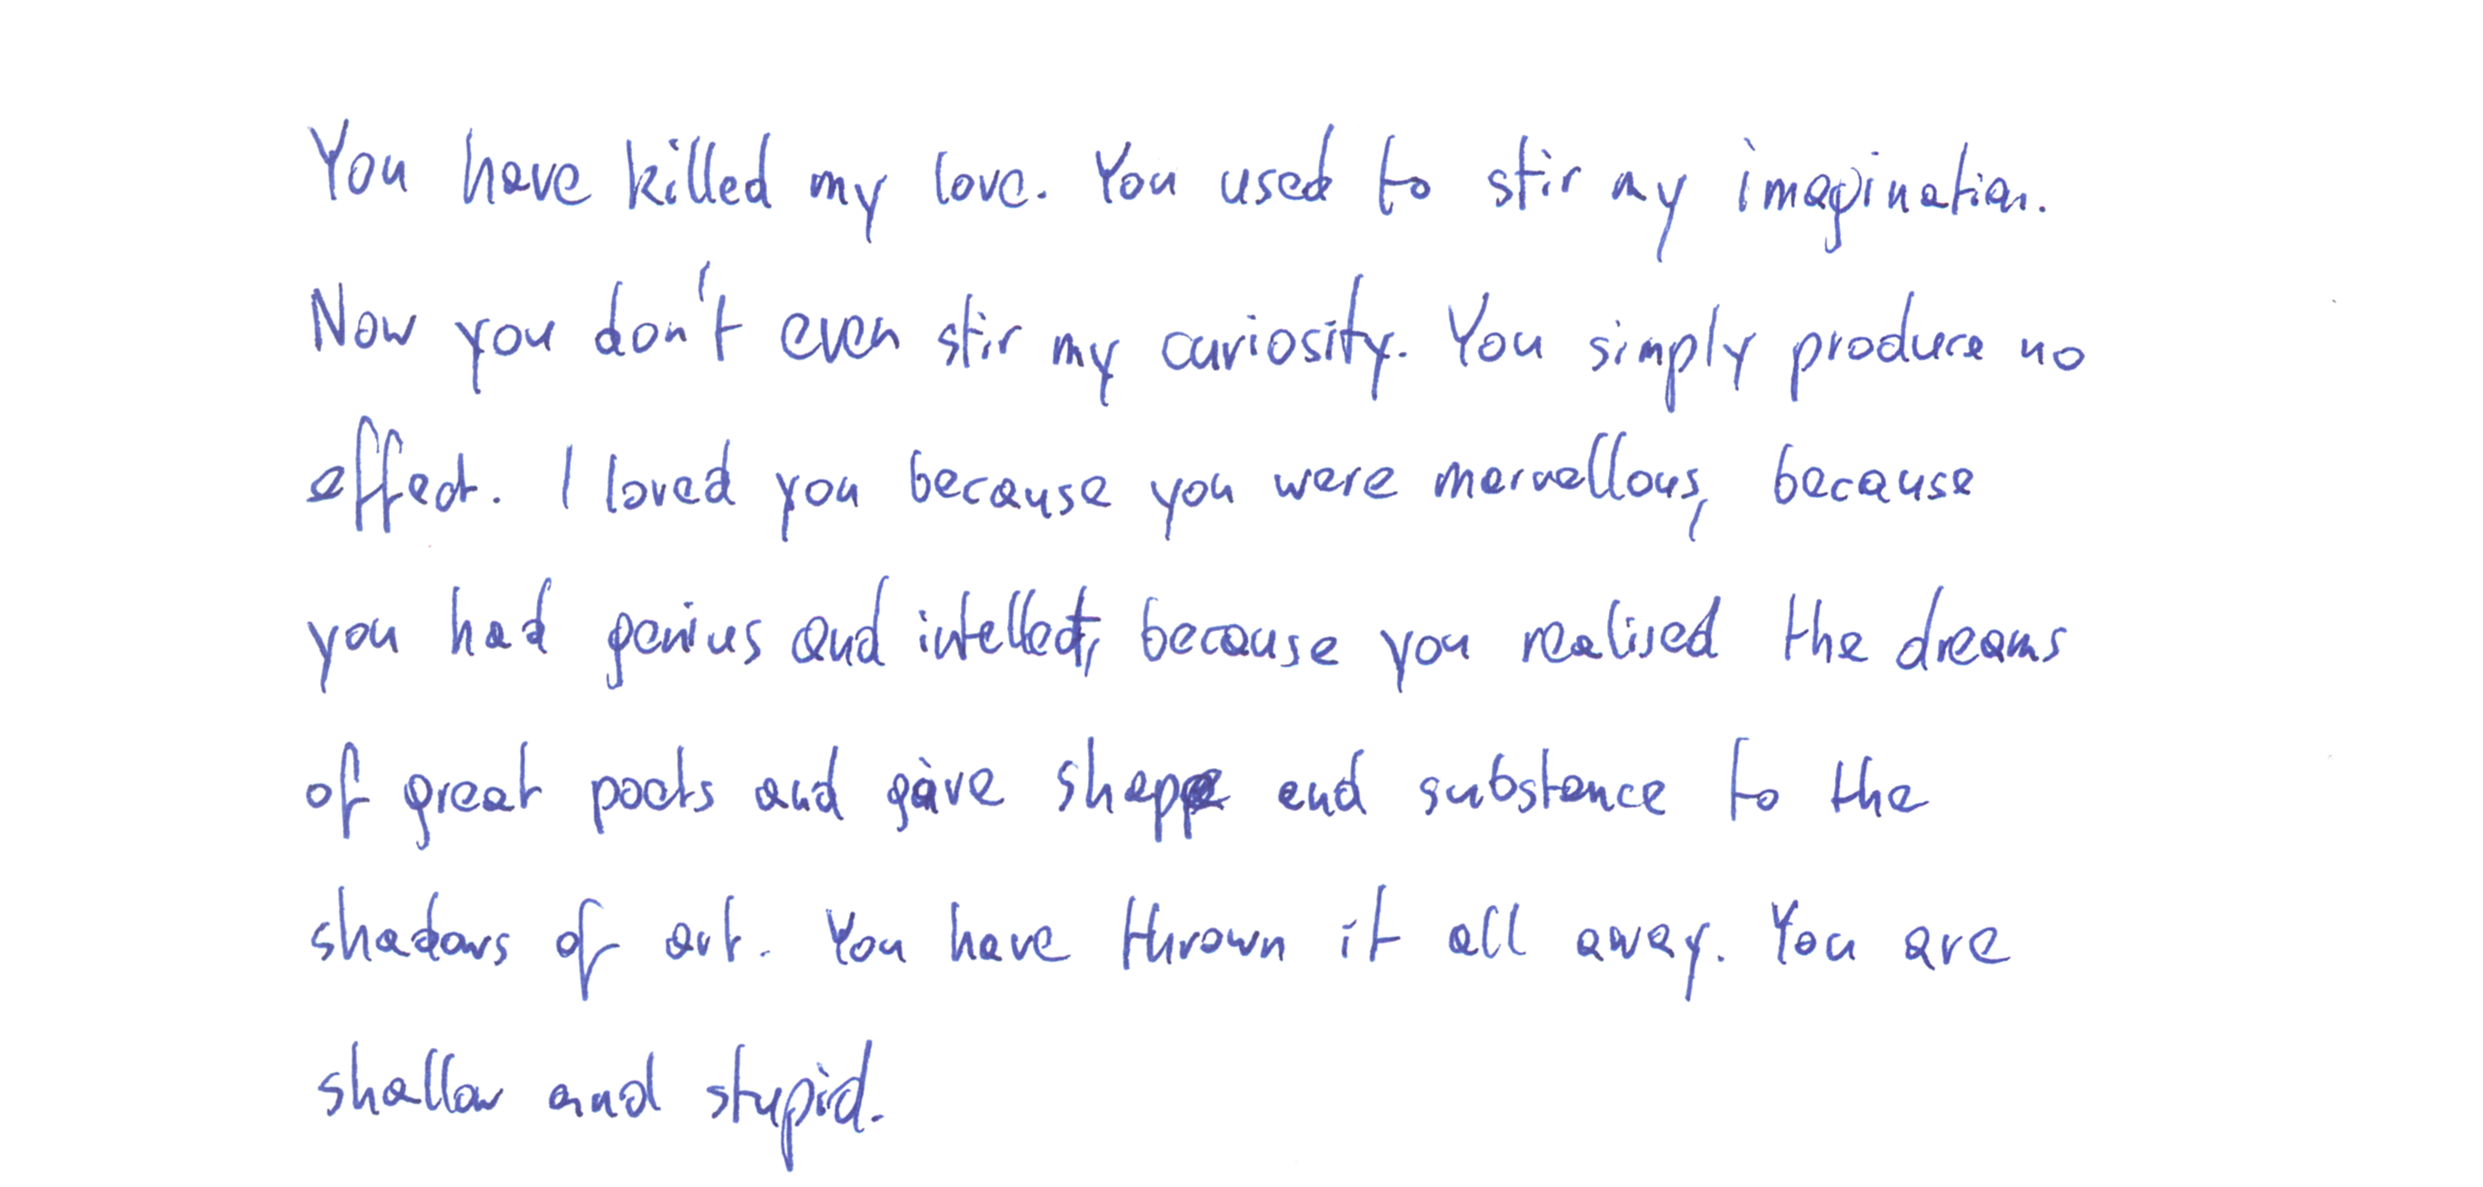 You have killed my love. You used to stir my imagination.
Now you don't even stir my curiosity. You simply produce no
effect. I loved you because you were marvellous, because
you had genius and intellect, because you realised the dreams
of great poets and gave shape and substance to the
shadows of art. You have thrown it all away. You are
shallow and stupid.